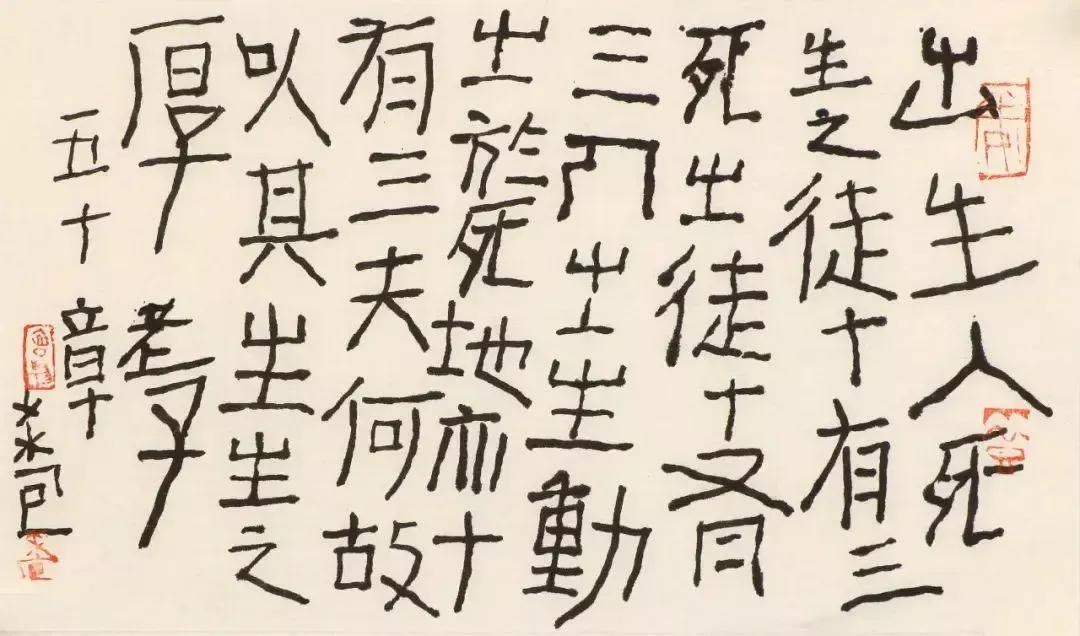 出生入死
生之徒十有三
死之徒十有
三人之生動
之於死地亦十
有三夫何故
以其生生之
厚 老子
五十章